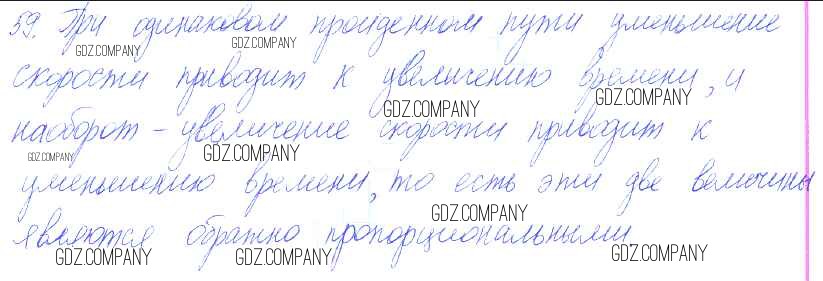 59. При одинаковом пройденном пути уменьшение
GDZ.COMPANY GDZ.COMPANY
скорости приводит к увеличению времени, и
GDZ.COMPANY GDZ.COMPANY
наоборот – увеличение скорости приводит к
GDZ.COMPANY GDZ.COMPANY
уменьшению времени, то есть эти две величины
GDZ.COMPANY
являются обратно пропорциональными
GDZ.COMPANY GDZ.COMPANY GDZ.COMPANY